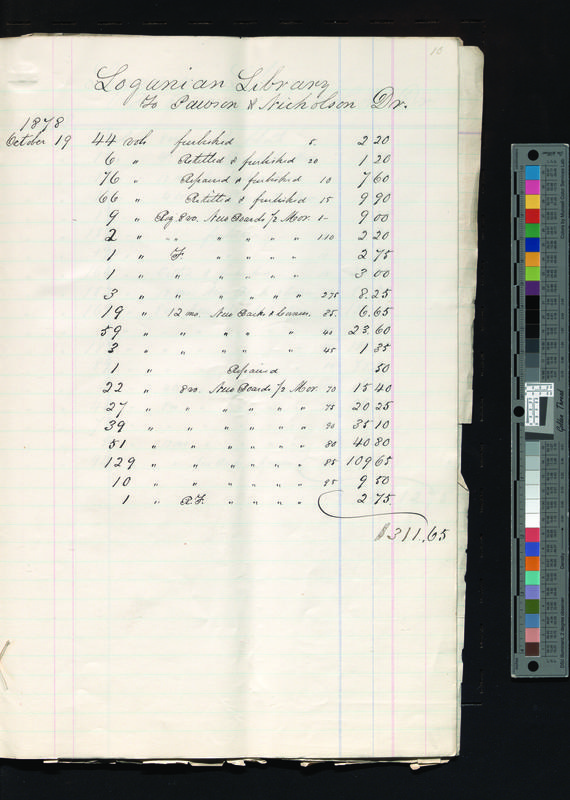 10
Loganian Library
To Pawson & Nicholson Dr.
1878
October 19 44 vols furbished 5. 2 20
6 " Retitled & furbished 20 1 20
76 " Repaired & furbished 10 7 60
66 " Retitled & furbished 15 9 90
9 " Roy 8vo. New Boards 1/2 Mor. 1- 9 00
2 " " " " " " " 110 2 20
1 " F " " " " " 2 75
1 " " " " " " " 3 00
3 " " " " " " " 275 8.25
19 " 12 mo. New Backs & Corners. 35. 6.65
59 " " " " " " 40 23.60
3 " " " " " " 45 1 35
1 " Repaired 50
22 " 8vo. New Boards 1/2 Mor. 70 15 40
27 " " " " " " " 75 20 25
39 " " " " " " " 90 35 10
51 " " " " " " " 80 40 80
129 " " " " " " " 85 109 65
10 " " " " " " " 95 9 50
1 " R.F. " " " " " 2 75.
$311.65